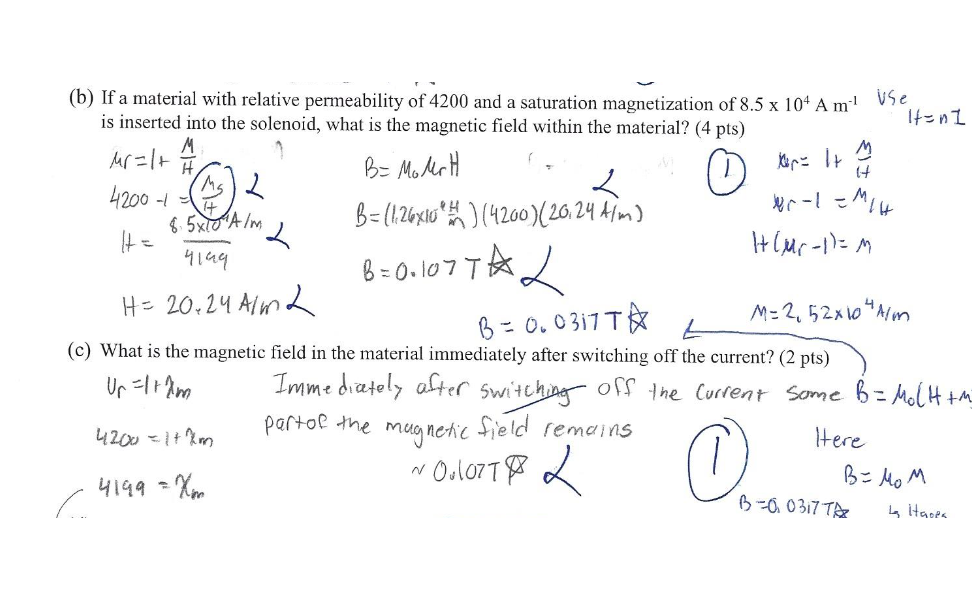 (b) If a material with relative permeability of 4200 and a saturation magnetization of 8.5 x 10⁴ A m⁻¹
is inserted into the solenoid, what is the magnetic field within the material? (4 pts)
Use
H=nI
μr=1+ M/H
4200-1 = Ms/H
H = 8.5x10⁴A/m / 4199
H= 20.24 A/m
B= μ₀μrH
B=(1.26x10⁻⁶ H/m)(4200)(20.24 A/m)
B=0.107 T
B= 0.0317 T
1
μr= 1+ M/H
μr-1 = M/H
H(μr-1)= M
M=2.52x10⁴A/m
(c) What is the magnetic field in the material immediately after switching off the current? (2 pts)
Ur=1+χm
4200=1+χm
4199=χm
Immediately after switching off the current some
part of the magnetic field remains
~0.107T
1
B=μ₀(H+M
Here
B=μ₀M
B=0.0317T